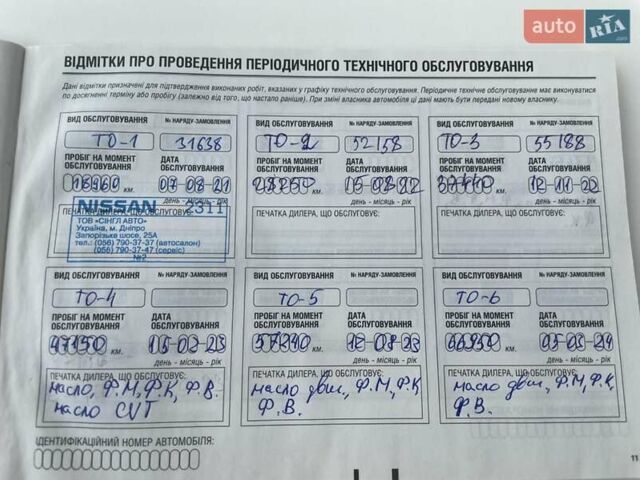 auto RIA.com
ВІДМІТКИ ПРО ПРОВЕДЕННЯ ПЕРІОДИЧНОГО ТЕХНІЧНОГО ОБСЛУГОВУВАННЯ
Дані відмітки призначені для підтвердження виконаних робіт, вказаних у графіку технічного обслуговування. Періодичне технічне обслуговування має виконуватися
по досягненні терміну або пробігу (залежно від того, що настало раніше). При зміні власника автомобіля ці дані мають бути передані новому власнику.
ВИД ОБСЛУГОВУВАННЯ № НАРЯДУ-ЗАМОВЛЕННЯ
ТО-1 31638
ПРОБІГ НА МОМЕНТ ОБСЛУГОВУВАННЯ ДАТА ОБСЛУГОВУВАННЯ
км. 07-08-21
день - місяць - рік
ПЕЧАТКА ДИЛЕРА, ЩО ОБСЛУГОВУЄ:
NISSAN
ТОВ «СІНГЛ АВТО»
Україна, м. Дніпро
Запорізьке шосе, 25А
тел.: (056) 790-37-37 (автосалон)
(056) 790-37-47 (сервіс)
№2
ВИД ОБСЛУГОВУВАННЯ № НАРЯДУ-ЗАМОВЛЕННЯ
ТО-2 52158
ПРОБІГ НА МОМЕНТ ОБСЛУГОВУВАННЯ ДАТА ОБСЛУГОВУВАННЯ
км.
день - місяць - рік
ПЕЧАТКА ДИЛЕРА, ЩО ОБСЛУГОВУЄ:
ВИД ОБСЛУГОВУВАННЯ № НАРЯДУ-ЗАМОВЛЕННЯ
ТО-3 55188
ПРОБІГ НА МОМЕНТ ОБСЛУГОВУВАННЯ ДАТА ОБСЛУГОВУВАННЯ
км. 12-11-22
день - місяць - рік
ПЕЧАТКА ДИЛЕРА, ЩО ОБСЛУГОВУЄ:
ВИД ОБСЛУГОВУВАННЯ № НАРЯДУ-ЗАМОВЛЕННЯ
ТО-4
ПРОБІГ НА МОМЕНТ ОБСЛУГОВУВАННЯ ДАТА ОБСЛУГОВУВАННЯ
47150 км.
день - місяць - рік
ПЕЧАТКА ДИЛЕРА, ЩО ОБСЛУГОВУЄ:
масло, Ф.М, Ф.К, Ф.В.
масло CVT
ВИД ОБСЛУГОВУВАННЯ № НАРЯДУ-ЗАМОВЛЕННЯ
ТО-5
ПРОБІГ НА МОМЕНТ ОБСЛУГОВУВАННЯ ДАТА ОБСЛУГОВУВАННЯ
км. 12-08-23
день - місяць - рік
ПЕЧАТКА ДИЛЕРА, ЩО ОБСЛУГОВУЄ:
масло двш, Ф.М, Ф.К
Ф.В.
ВИД ОБСЛУГОВУВАННЯ № НАРЯДУ-ЗАМОВЛЕННЯ
ТО-6
ПРОБІГ НА МОМЕНТ ОБСЛУГОВУВАННЯ ДАТА ОБСЛУГОВУВАННЯ
км.
день - місяць - рік
ПЕЧАТКА ДИЛЕРА, ЩО ОБСЛУГОВУЄ:
масло двш, Ф.М, Ф.К,
Ф.В.
ІДЕНТИФІКАЦІЙНИЙ НОМЕР АВТОМОБІЛЯ:
11